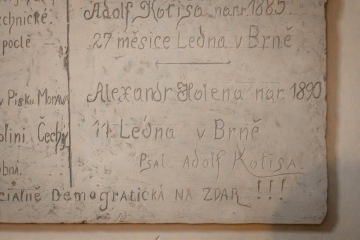 echnické
poclé
v Písku Morava
olíni Čechy
obná.
Adolf Kotisa nar. 1885.
27 měsíce Ledna v Brně
Alexandr Holena nar. 1890
11 Ledna v Brně
Psal Adolf Kotisa
ciálně Demogratická NA ZDAR !!!